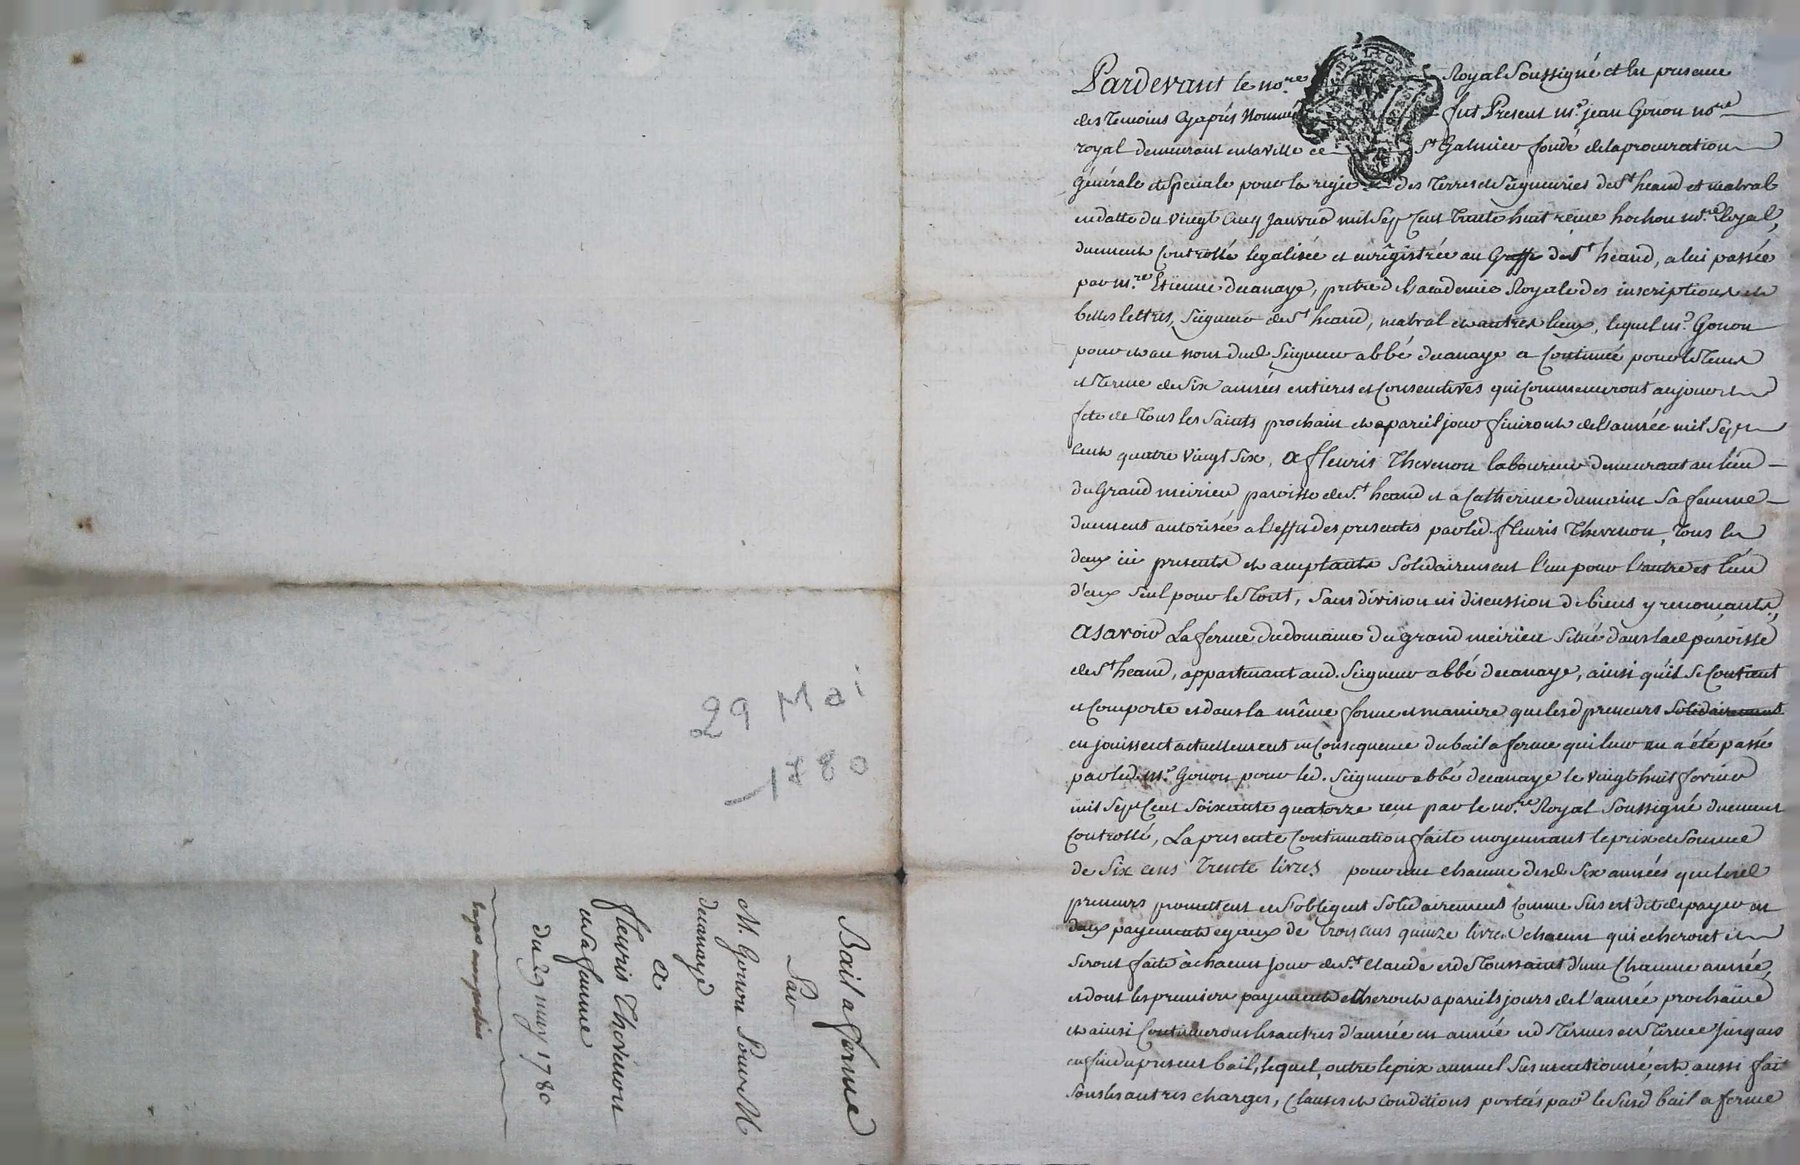 29 Mai
1780
Bail a ferme
Par
M. Gonon Pour M
decanaye
a
fleuris Thevenon
et sa femme
du 29 may 1780
Pardevant le no.re Royal Soussigné et en presence
des temoins cyaprés nommés fut Present m.e jean Gonon no.re
royal demeurant en la ville de St Galmier fondé de la procuration
générale et speciale pour la regie des terres et Seigneuries de St heand et malval
en datte du vingt cinq janvier mil sept cent soixante huit reçue hochon no.re Royal,
duement controllée legalisée et enregistrée au Greffe de St heand, a lui passée
par m.re Etienne decanaye, pretre de l'academie Royale des inscriptions et
belles lettres, Seigneur de St heand, malval et autres lieux, lequel m.e Gonon
pour et au nom dud. Seigneur abbé decanaye a continué pour le tems
et terme de six années entieres et consecutives qui commenceront au jour et
fete de tous les Saints prochain et a pareil jour finiront de l'année mil sept
cent quatre vingt six, a fleuris Thevenon laboureur demeurant au lieu
du Grand meirieu paroisse de St heand et a Catherine dumaine sa femme
duement autorisée a l'effet des presentes par led. fleuris Thevenon, tous les
deux ici presents et acceptants solidairement l'un pour l'autre et l'un
d'eux seul pour le tout, sans division ni discussion de biens y renonçants,
asavoir La ferme du domaine du grand meirieu situé dans lad. paroisse
de St heand, appartenant aud. Seigneur abbé decanaye, ainsi qu'il se contient
et comporte et dans la même forme et maniere que lesd. preneurs solidairement
en jouissent actuellement en consequence du bail a ferme qui leur en a été passé
par led. m.e Gonon pour led. Seigneur abbé decanaye le vingt huit fevrier
mil sept cent soixante quatorze reçu par le no.re Royal Soussigné duement
controllé, La presente continuation faite moyennant le prix et somme
de six cens trente livres pour une chacune desd. six années que lesd.
preneurs promettent et s'obligent solidairement comme sus est dit de payer en
deux payements egaux de trois cens quinze livres chacun qui echeront et
seront faits à chacun jour de St Claude et de Toussaint d'une chacune année,
et dont les premiers payements echeront a pareils jours de l'année prochaine
et ainsi continueront les autres d'année en année et de termes en terme jusques
en fin du present bail, lequel, outre le prix annuel susmentionné, est aussi fait
sous les autres charges, clauses et conditions portées par le susd. bail a ferme